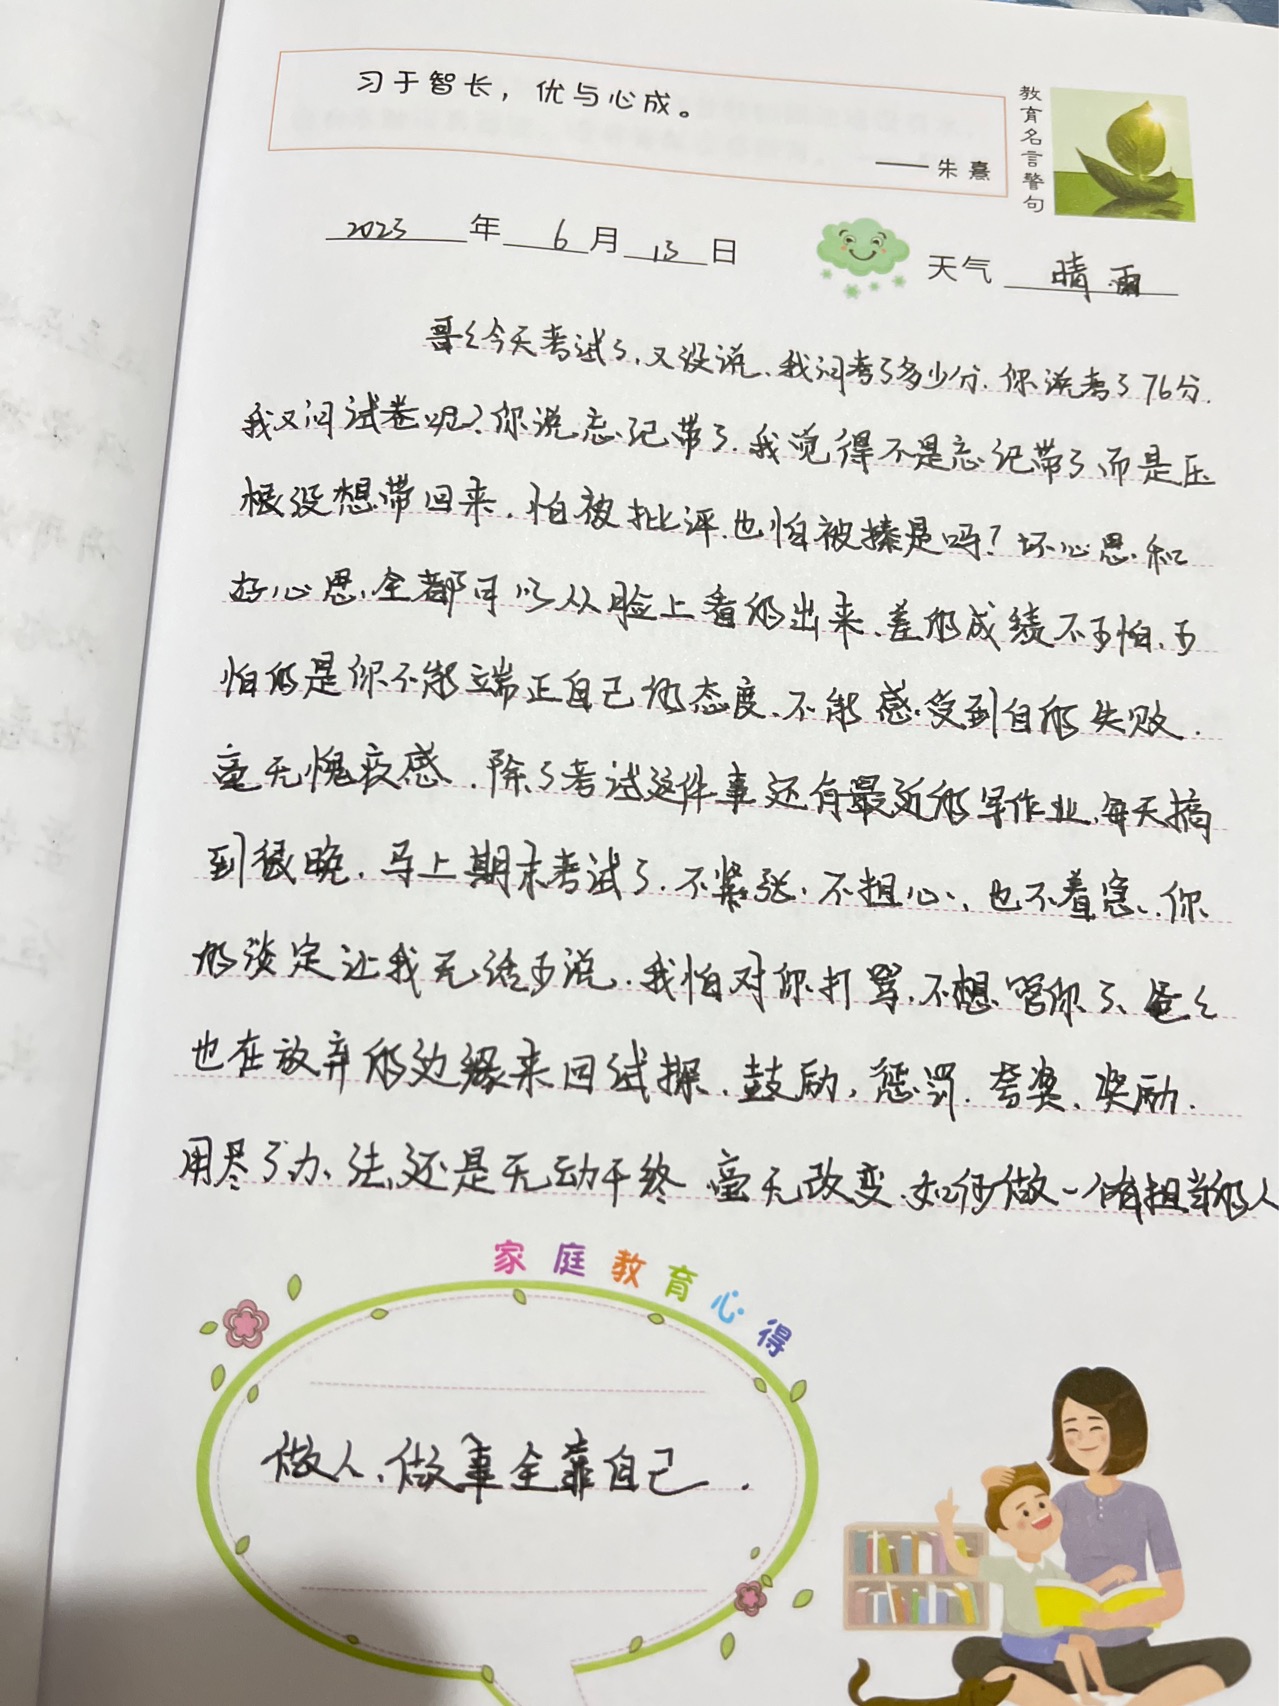 习于智长，优与心成。
——朱熹
教育名言警句
2023年6月13日
天气 晴.雨
哥々今天考试了.又没说.我问考了多少分.你说考了76分.
我又问试卷呢?你说忘记带了.我觉得不是忘记带了.而是压
根没想带回来.怕被批评.也怕被揍是吗?坏心思.和
好心思.全都可以从脸上看的出来.差的成绩不可怕.可
怕的是你不能端正自己的态度.不能感受到自的失败.
毫无愧疚感.除了考试这件事还有最近的写作业.每天搞
到很晚.马上期末考试了.不紧张.不担心.也不着急.你
的淡定让我无话可说.我怕对你打骂.不想管你了.爸々
也在放弃的边缘来回试探.鼓励,惩罚.夸奖.奖励.
用尽了办法.还是无动于终 毫无改变.如何做一个有担当的人
家庭教育心得
做人.做事全靠自己.